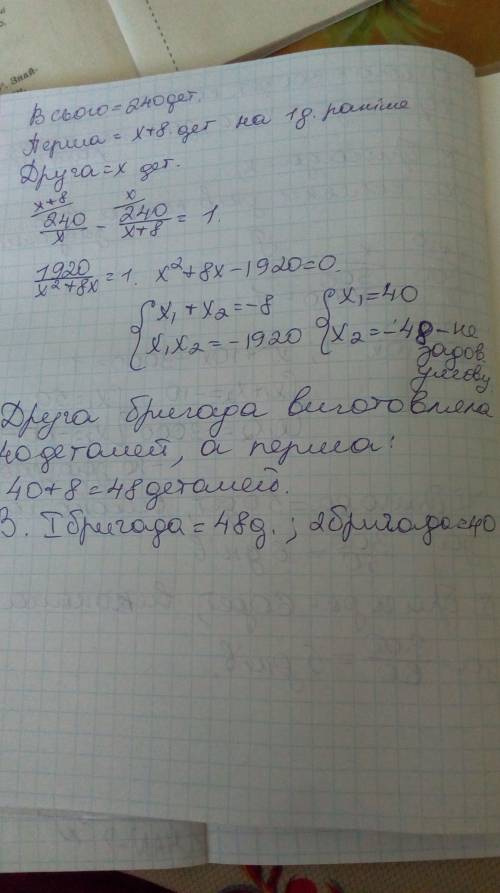 Знай-
Всього = 240 дет.
Перша = x+8 дет на 1д. раніше
Друга = x дет.
x+8 x
240/x - 240/x+8 = 1.
1920/x²+8x = 1. x²+8x-1920=0.
{x₁+x₂=-8 {x₁=40
{x₁x₂=-1920 {x₂=-48 - не
задов.
умову
Друга бригада виготовляла
40 деталей, а перша:
40+8=48 деталей.
В. I бригада = 48д. ; 2 бригада = 40